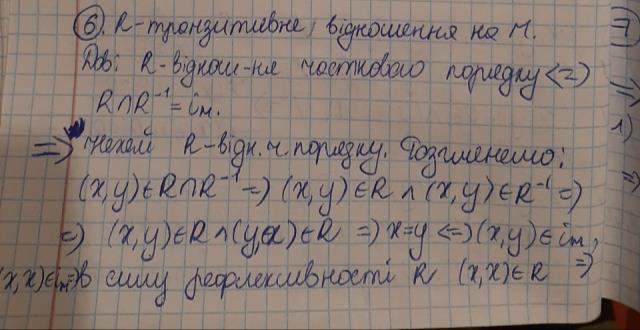 ⑥. R-транзитивне відношення на M.
Дов: R-віднош-ня часткового порядку <=>
R∩R⁻¹ = iₘ.
=> Нехай R-відн. ч. порядку. Розглянемо:
(x,y)∈R∩R⁻¹ => (x,y)∈R ∧ (x,y)∈R⁻¹ =>
=> (x,y)∈R ∧ (y,x)∈R => x=y <=> (x,y)∈iₘ,
(x,x)∈iₘ => в силу рефлексивності R (x,x)∈R =>
7
=>
1)
=>